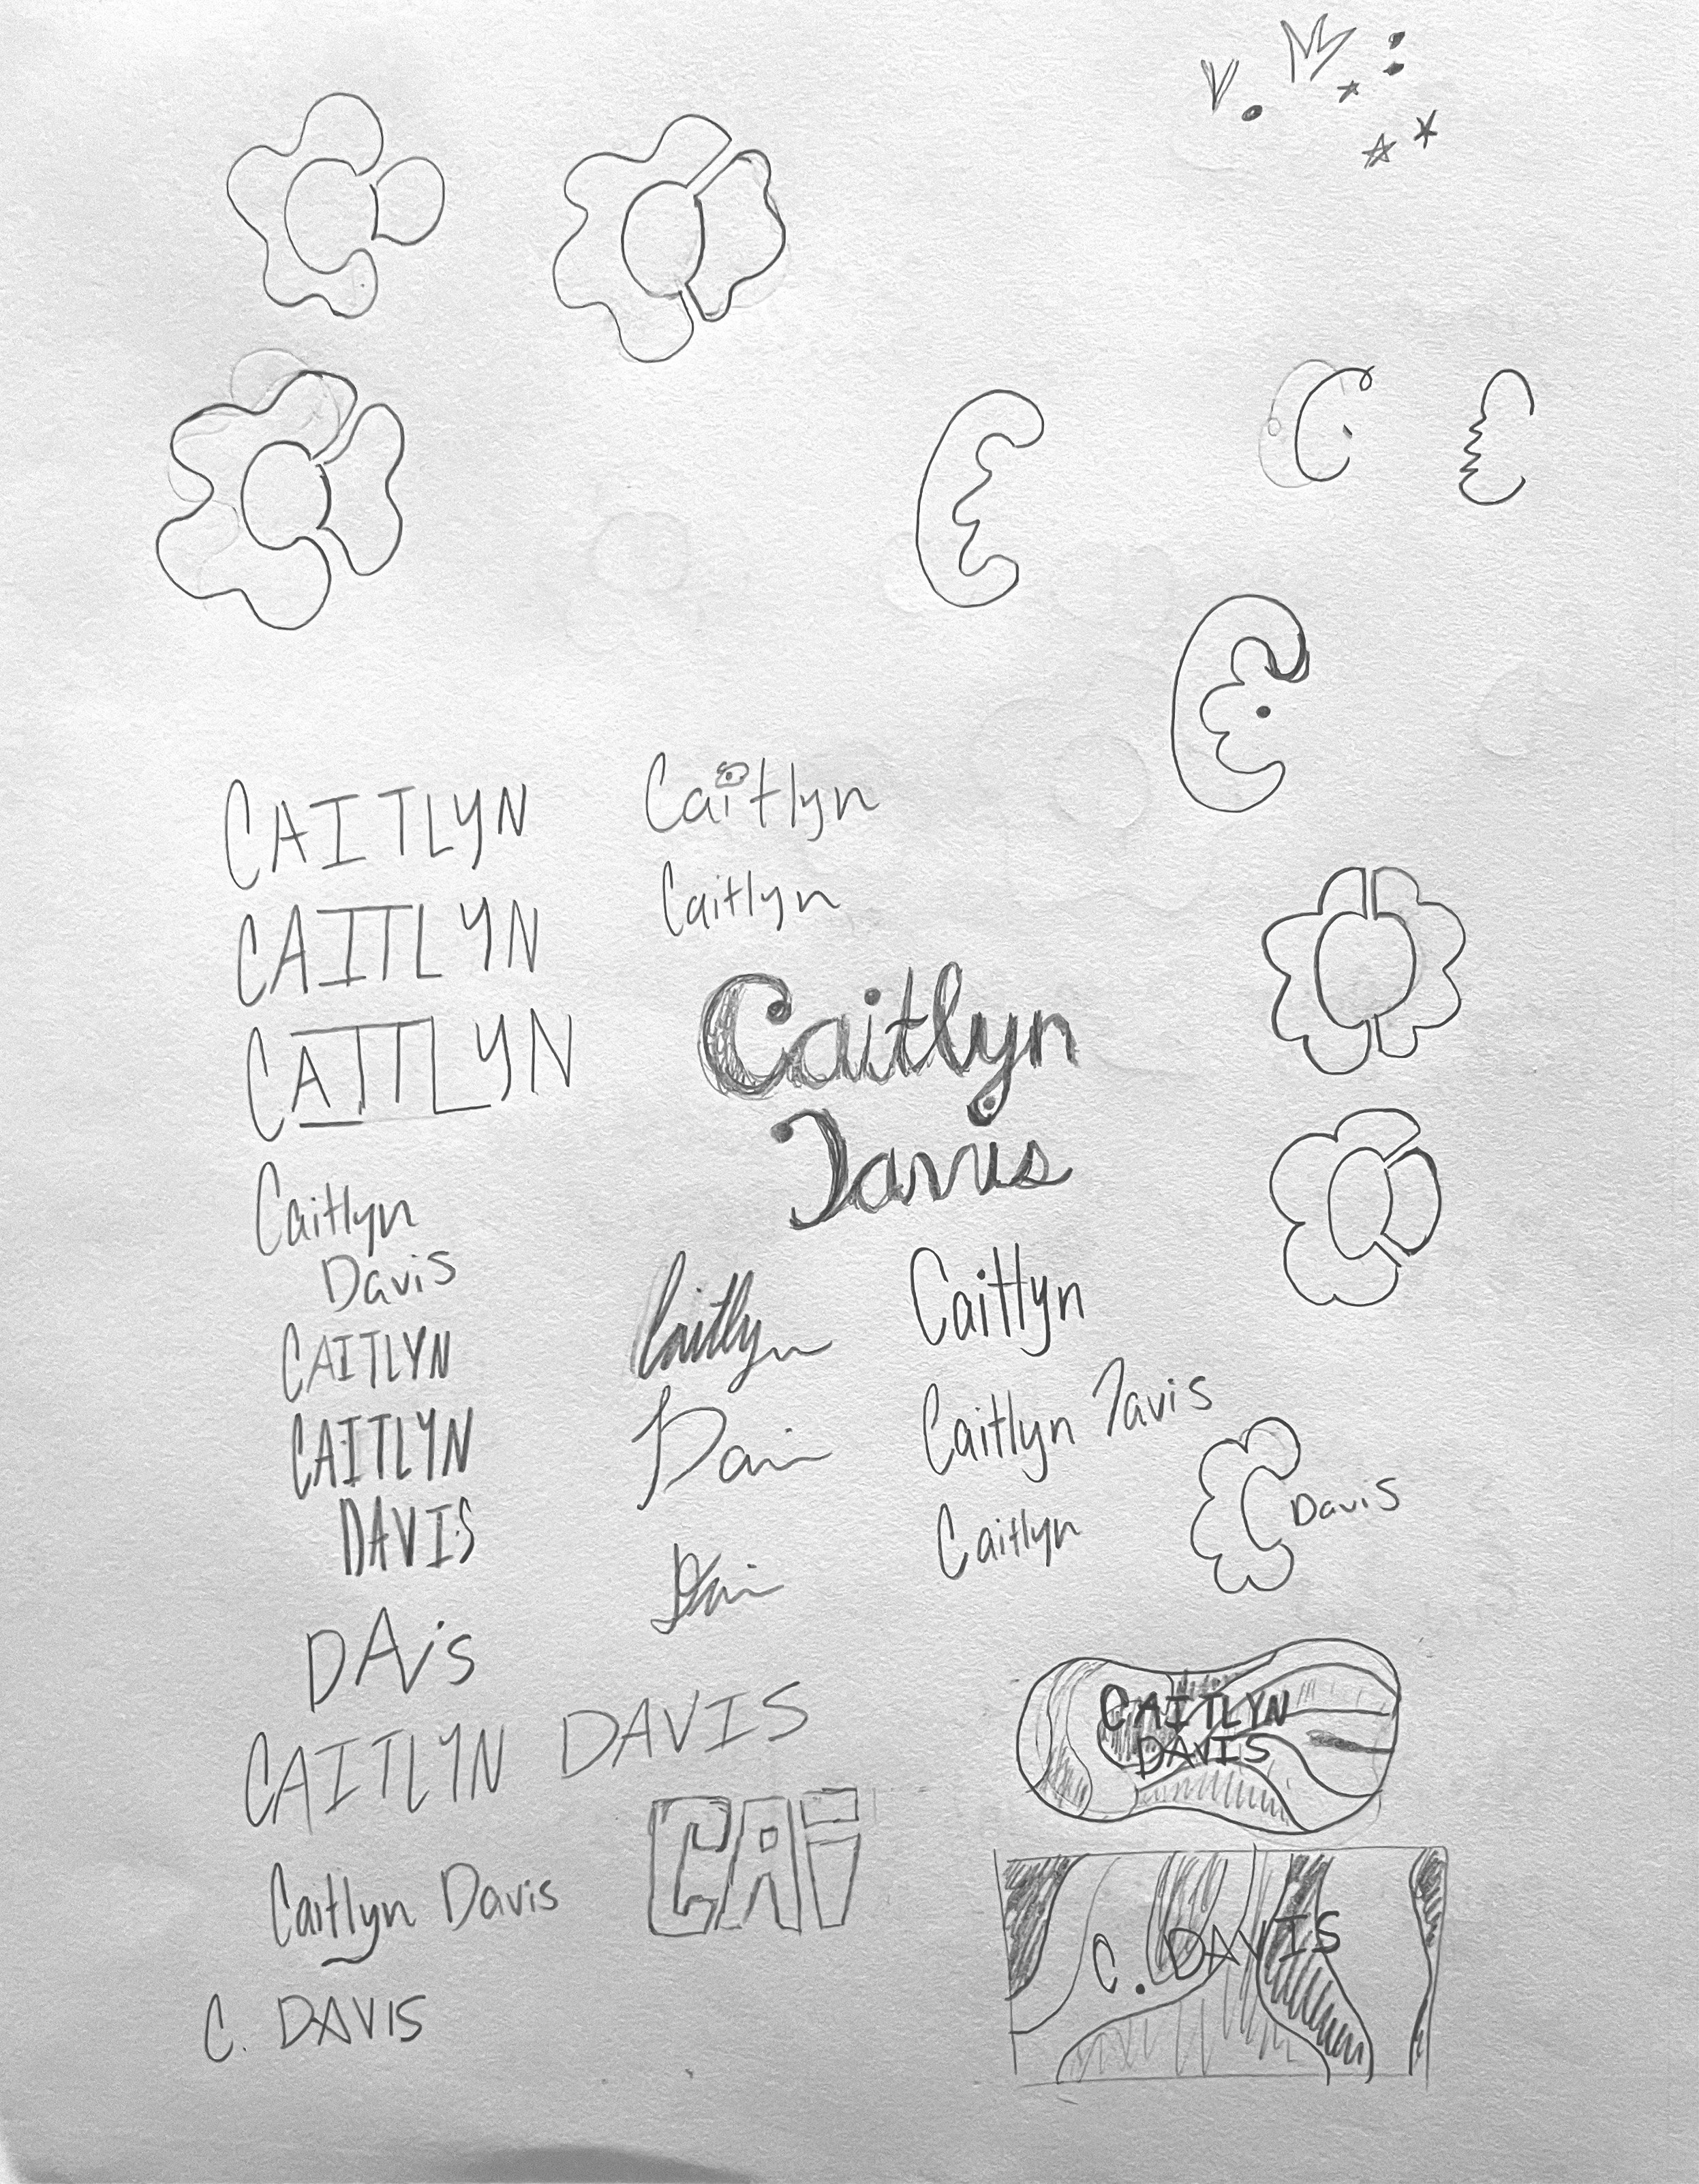 CAITLYN
CAITLYN
CAITLYN
Caitlyn
Davis
CAITLYN
CAITLYN
DAVIS
DAvis
CAITLYN DAVIS
Caitlyn Davis
C. DAVIS
Caitlyn
Caitlyn
Caitlyn
Davis
Caitlyn
Davis
Davis
CAi
Caitlyn
Caitlyn Davis
Caitlyn
C Davis
CAITLYN
DAVIS
C. DAVIS